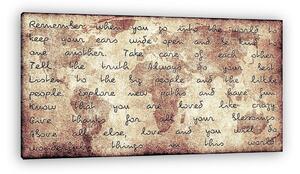 Remember when you go into the world to
keep your ears wide open and be kind
one another. Take care of each other
Tell the truth Always do your best
Listen to the big people and the little
people Explore new paths and have fun
Know that you are loved like crazy
Give thanks for all your blessings
Above all else, love and you will do
wonderful things in this world